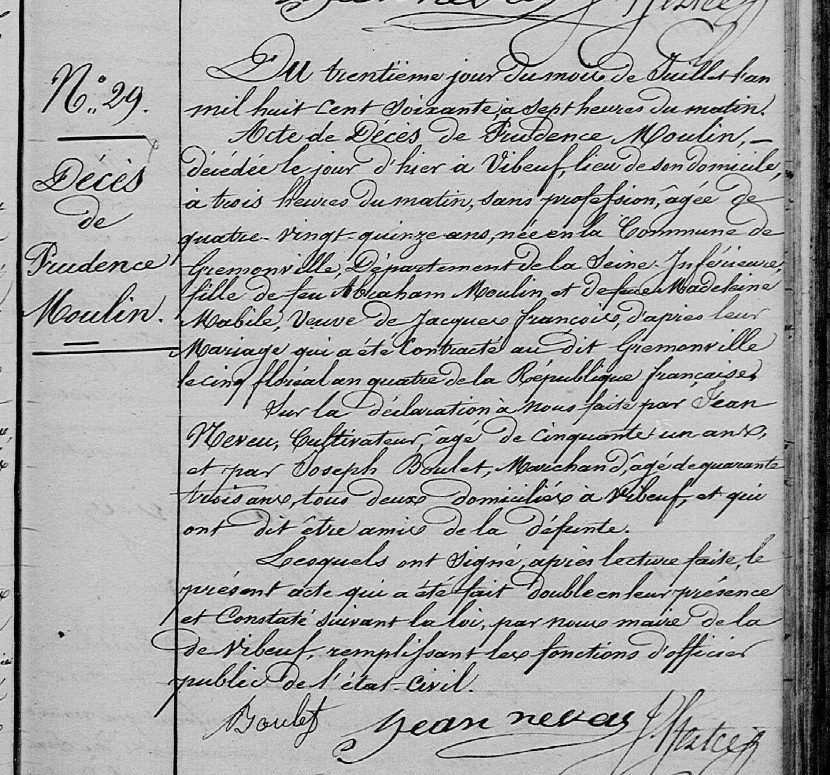 N.° 29.
Décès
de
Prudence
Moulin.
Du trentième jour du mois de Juillet l'an
mil huit cent soixante, à sept heures du matin.
Acte de Décès de Prudence Moulin, —
décédée le jour d'hier à Vibeuf, lieu de son domicile,
à trois heures du matin, sans profession, âgée de
quatre-vingt-quinze ans, née en la Commune de
Gremonville, Département de la Seine-Inférieure,
fille de feu Abraham Moulin, et de feue Madeleine
Mabile, Veuve de Jacques François, d'après leur
Mariage qui a été Contracté au dit Gremonville
le cinq floréal an quatre de la République française.
Sur la déclaration à Nous faite par Jean
Neveu, Cultivateur, âgé de cinquante un ans,
et par Joseph Boulet, Marchand, âgé de quarante
trois ans, tous deux domiciliés à Vibeuf, et qui
ont dit être amis de la défunte.
Lesquels ont signé, après lecture faite, le
présent acte qui a été fait double en leur présence
et Constaté suivant la loi, par nous maire de la
de Vibeuf, remplissant les fonctions d'officier
public de l'état-Civil.
Boulet Jean neveu